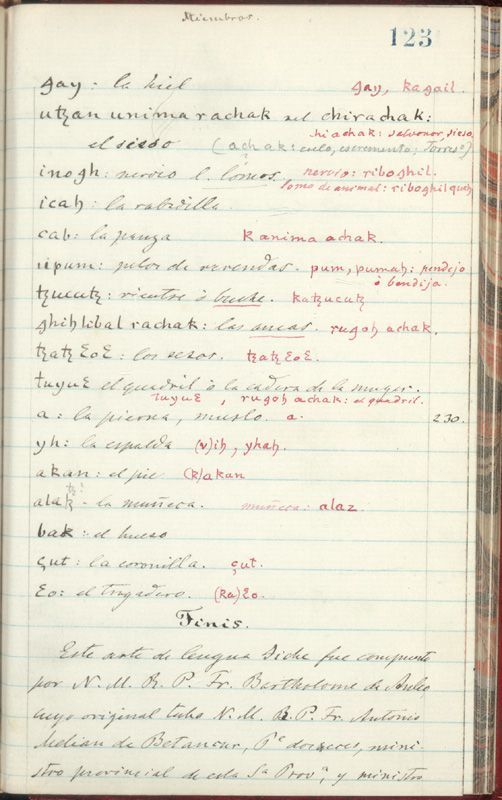 Miembros.
123
gay: la hiel gay, kagail.
utzan unima rachak vel chirachak:
hiachak: salvonor, sieso,
el siesso (achak: culo, escremento; Torresº)
inogh: nervio l. lomos, nervio: riboghil.
lomo de animal: riboghil queh
icah: la rabidilla.
cab: la panza kanima achak.
pum: pelos de verendas. pum, pumah: pendejo
ò bendija.
tzucutz: vientre ò buche. katzucutz
ghihlibal rachak: las ancas. rugoh achak.
tzatz ꜫoꜫ: los sesos. tzatzꜫoꜫ.
tuyuꜫ el quadril ò la cadera de la muger.
tuyuꜫ, rugoh achak: el quadril.
a: la pierna, muslo. a. 230.
yh: la espalda (v)ih, yhah.
akan: el pie (r)akan
tz?
alatz - la muñeca. muñeca: alaz.
bak: el hueso
çut: la coronilla. çut.
ꜫo: el tragadero. (ka)ꜫo.
Finis.
Este arte de lengua Qiche fue compuesto
por N. M. R. P. Fr. Bartholome de Anleo
cuyo original tubo N. M. R. P. Fr. Antonio
Melian de Betancur, Pe dos veces, mini-
stro provincial de esta Sta Prova, y ministro